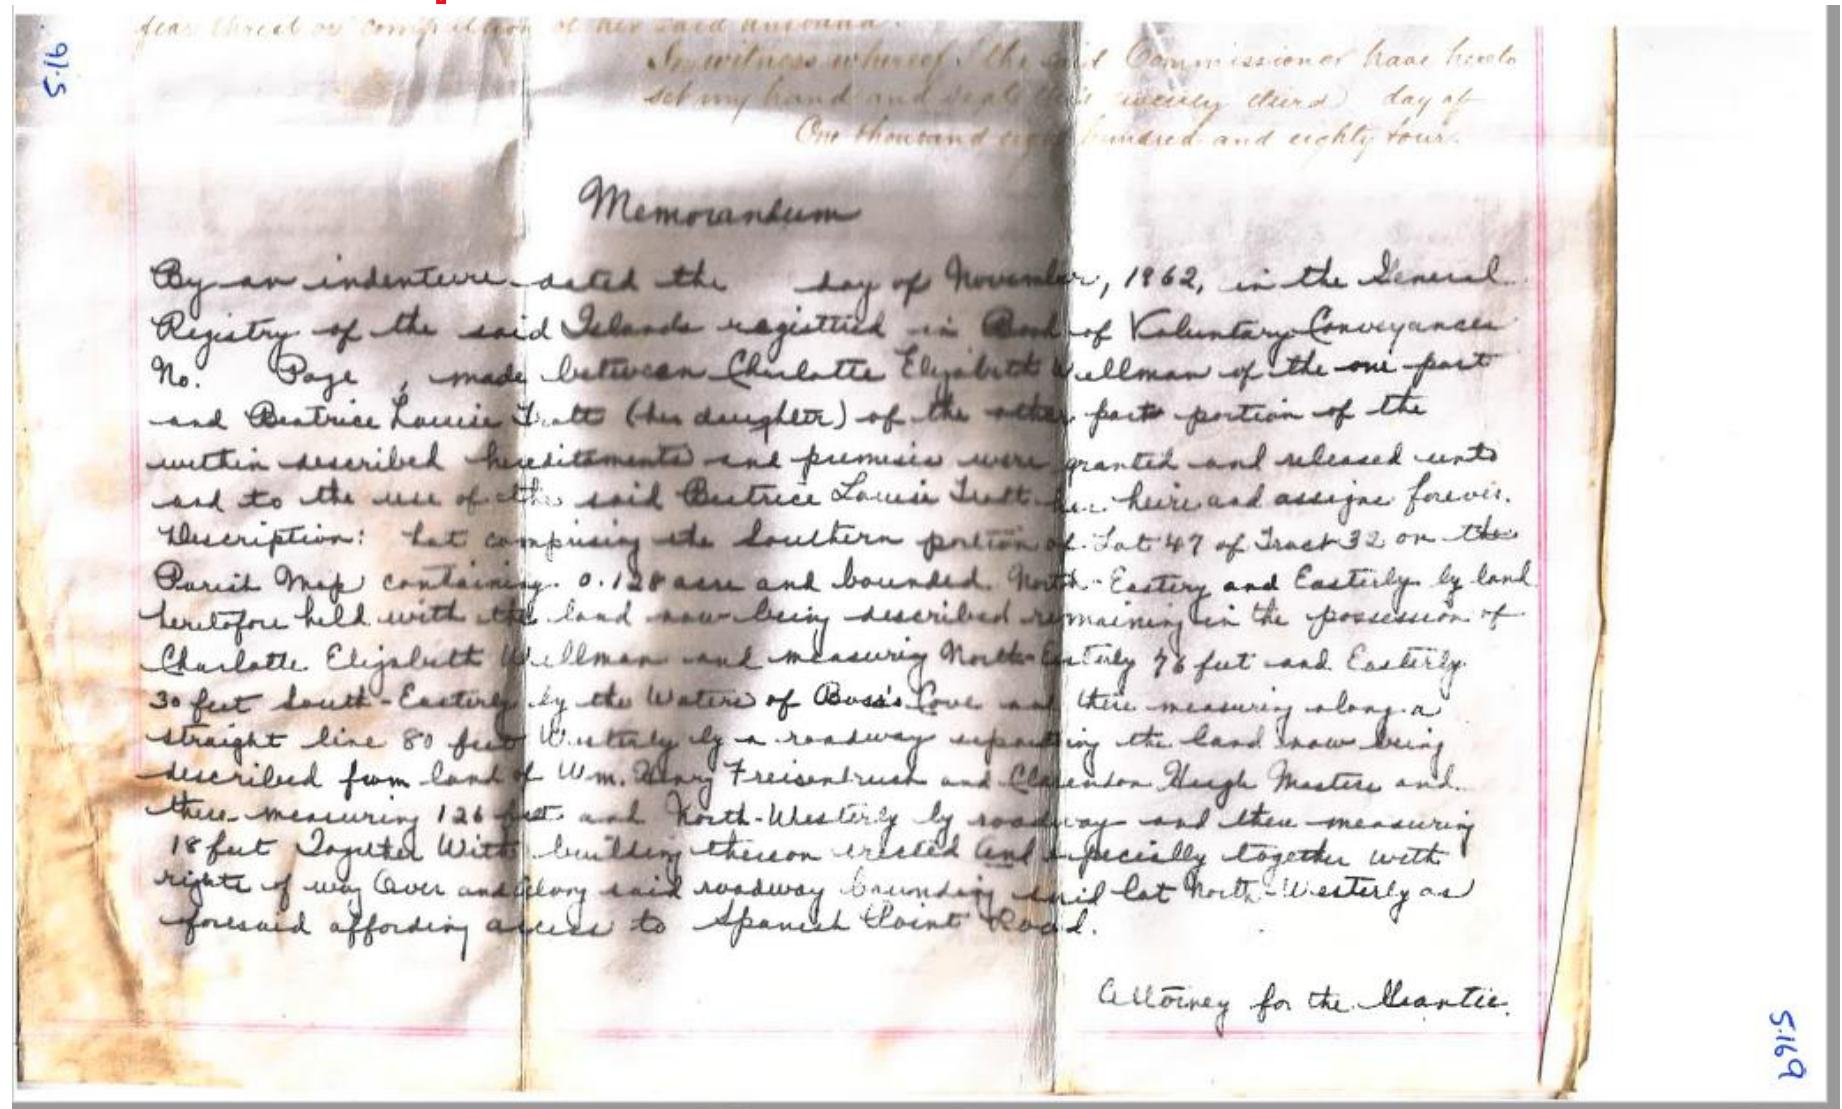 fear threat or compulsion of her said husband.
In witness whereof I the said Commissioner have hereto
set my hand and seals this twenty third day of
One thousand eight hundred and eighty four.
91.5
Memorandum
By an indenture dated the day of November, 1962, in the General
Registry of the said Islands registered in Book of Voluntary Conveyances
No. Page , made between Charlotte Elizabeth Wellman of the one part
and Beatrice Louise Trott (her daughter) of the other part portion of the
within described hereditaments and premises were granted and released unto
and to the use of the said Beatrice Louise Trott her heirs and assigns forever.
Description: Lot comprising the Southern portion of Lot 47 of Tract 32 on the
Parish Map containing 0.128 acre and bounded North-Eastery and Easterly by land
heretofore held with the land now being described remaining in the possession of
Charlotte Elizabeth Wellman and measuring North-Easterly 76 feet and Easterly
30 feet South-Easterly by the Waters of Boss's Cove and there measuring along a
straight line 80 feet Westerly by a roadway separating the land now being
described from land of Wm. Henry Freisenbrush and Clarendon Hugh Masters and
there measuring 126 feet and North-Westerly by roadway and there measuring
18 feet Together With building thereon erected And especially together with
rights of way Over and Along said roadway bounding said lot North-Westerly as
foresaid affording access to Spanish Point Road.
Attorney for the Grantee.
5.169